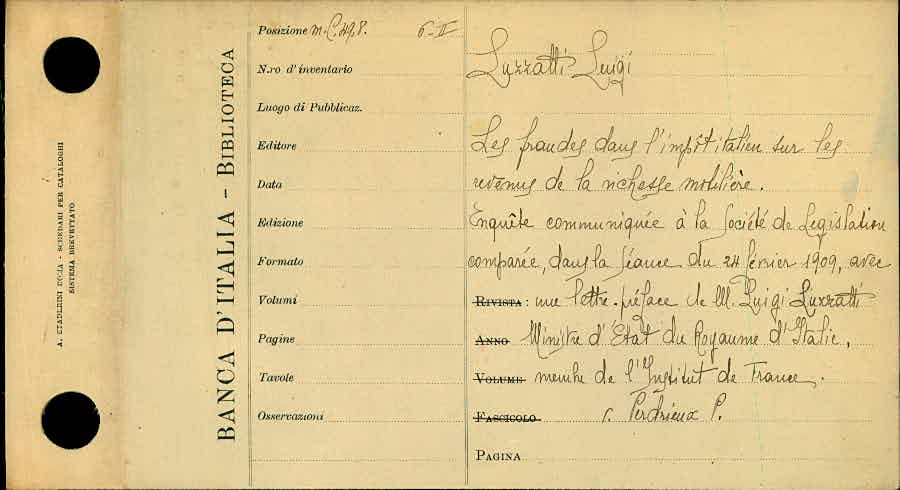 A. STADERINI ROMA - SCHEDARI PER CATALOGHI
SISTEMA BREVETTATO
BANCA D'ITALIA - BIBLIOTECA
Posizione m.C.498. 6-II
N.ro d'inventario
Luogo di Pubblicaz.
Editore
Data
Edizione
Formato
Volumi
Pagine
Tavole
Osservazioni
Luzzatti Luigi
Les fraudes dans l'impôt italien sur les
revenus de la richesse mobilière.
Enquête communiquée à la Société de Legislation
comparée, dans la séance du 24 fevrier 1909, avec
RIVISTA: une lettre-préface de M. Luigi Luzzatti
ANNO Ministre d'Etat du Royaume d'Italie,
VOLUME membre de l'Institut de France.
FASCICOLO Perdrieux P.
PAGINA